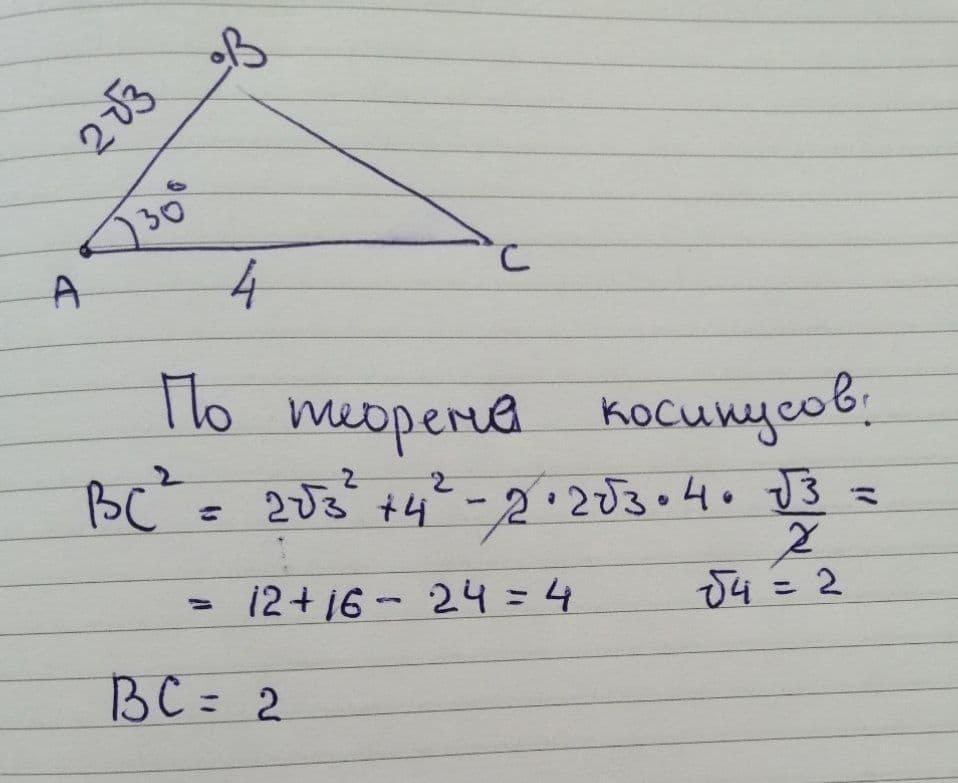 B
2√3
30°
A
4
C
По теорема косинусов:
BC² = 2√3² + 4² - 2 · 2√3 · 4 · √3/2 =
= 12 + 16 - 24 = 4 √4 = 2
BC = 2